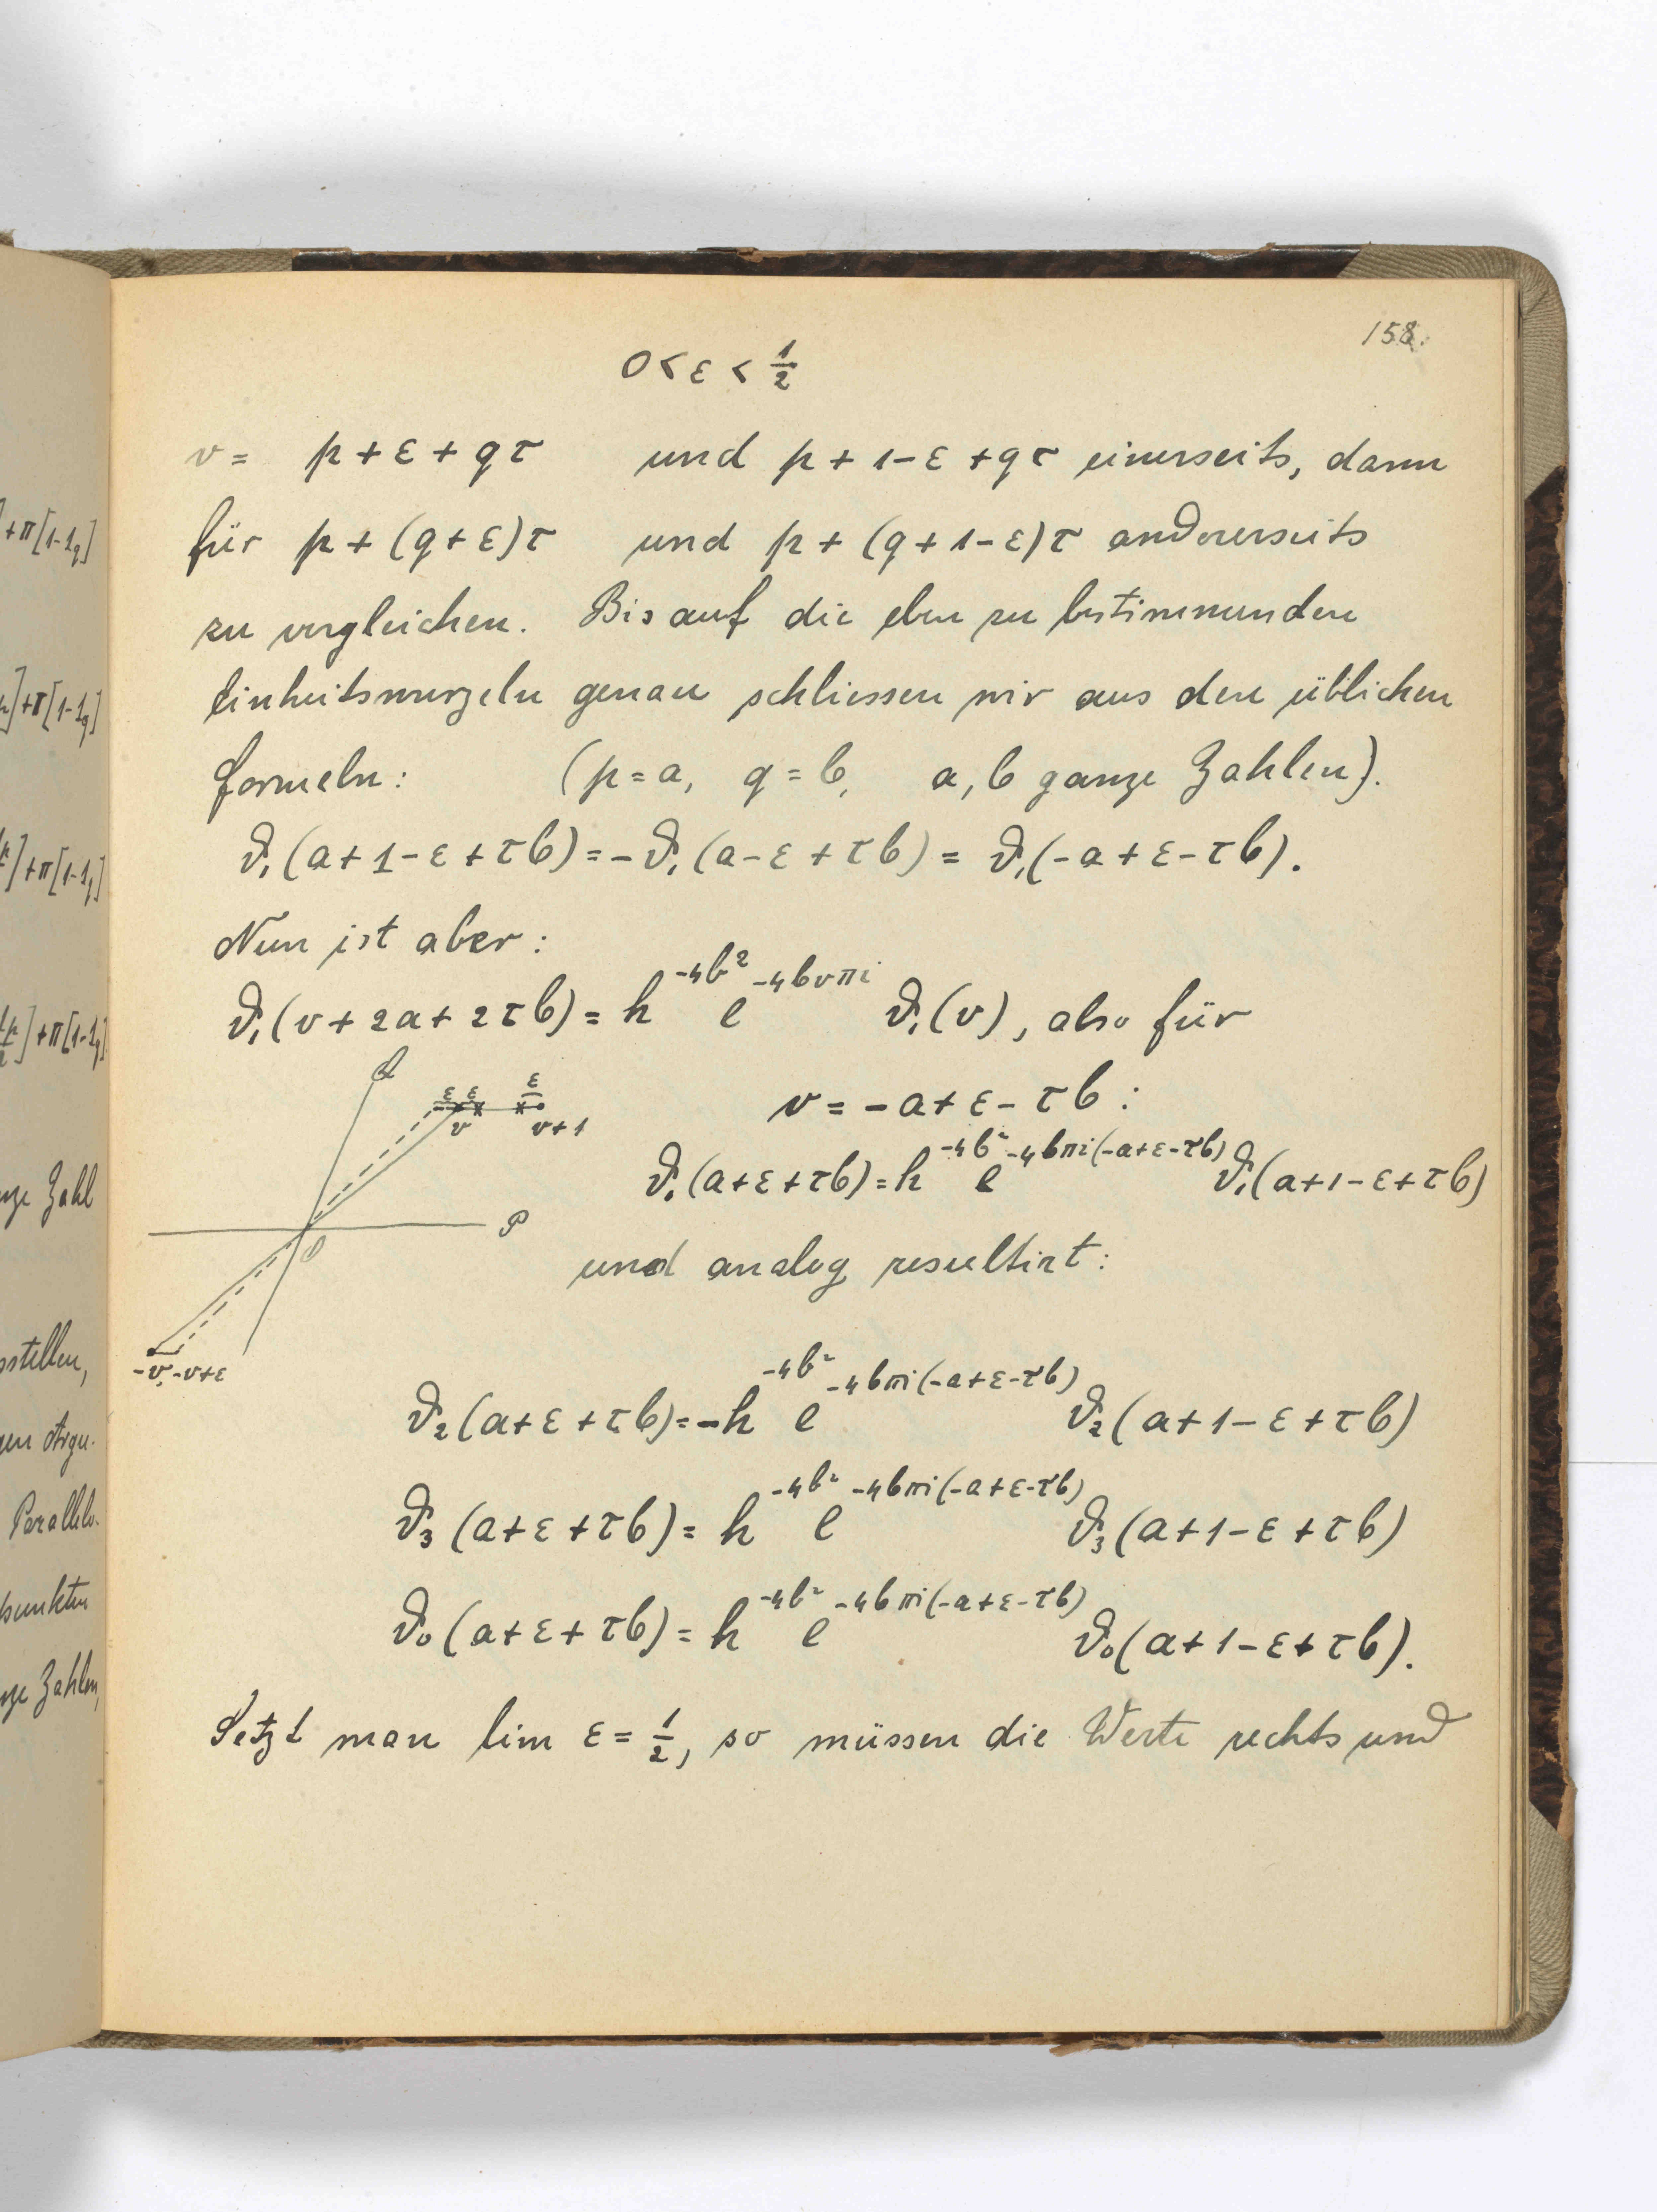 158.
0 < ε < 1/2
v = p + ε + qτ und p + 1 - ε + qτ einerseits, dann
für p + (q + ε)τ und p + (q + 1 - ε)τ andererseits
zu vergleichen. Bis auf die eben zu bestimmenden
Einheitswurzeln genau schliessen wir aus den üblichen
Formeln: (p = a, q = b, a, b ganze Zahlen).
ϑ₁(a + 1 - ε + τb) = -ϑ₁(a - ε + τb) = ϑ₁(-a + ε - τb).
Nun ist aber:
ϑ₁(v + 2a + 2τb) = h^{-4b²} e^{-4bvπi} ϑ₁(v), also für
v = -a + ε - τb:
ϑ₁(a + ε + τb) = h^{-4b²} e^{-4bπi(-a+ε-τb)} ϑ₁(a + 1 - ε + τb)
und analog resultirt:
Q
ε ε ε
v v+1
P
0
-v, -v+ε
ϑ₂(a + ε + τb) = -h^{-4b²} e^{-4bπi(-a+ε-τb)} ϑ₂(a + 1 - ε + τb)
ϑ₃(a + ε + τb) = h^{-4b²} e^{-4bπi(-a+ε-τb)} ϑ₃(a + 1 - ε + τb)
ϑ₀(a + ε + τb) = h^{-4b²} e^{-4bπi(-a+ε-τb)} ϑ₀(a + 1 - ε + τb).
Setzt man lim ε = 1/2, so müssen die Werte rechts und
+π[1-1q]
]+π[1-1q]
]+π[1-1q]
]+π[1-1q]
Zahl
stellen,
gen Argu-
Parallelo-
punkten
Zahlen,